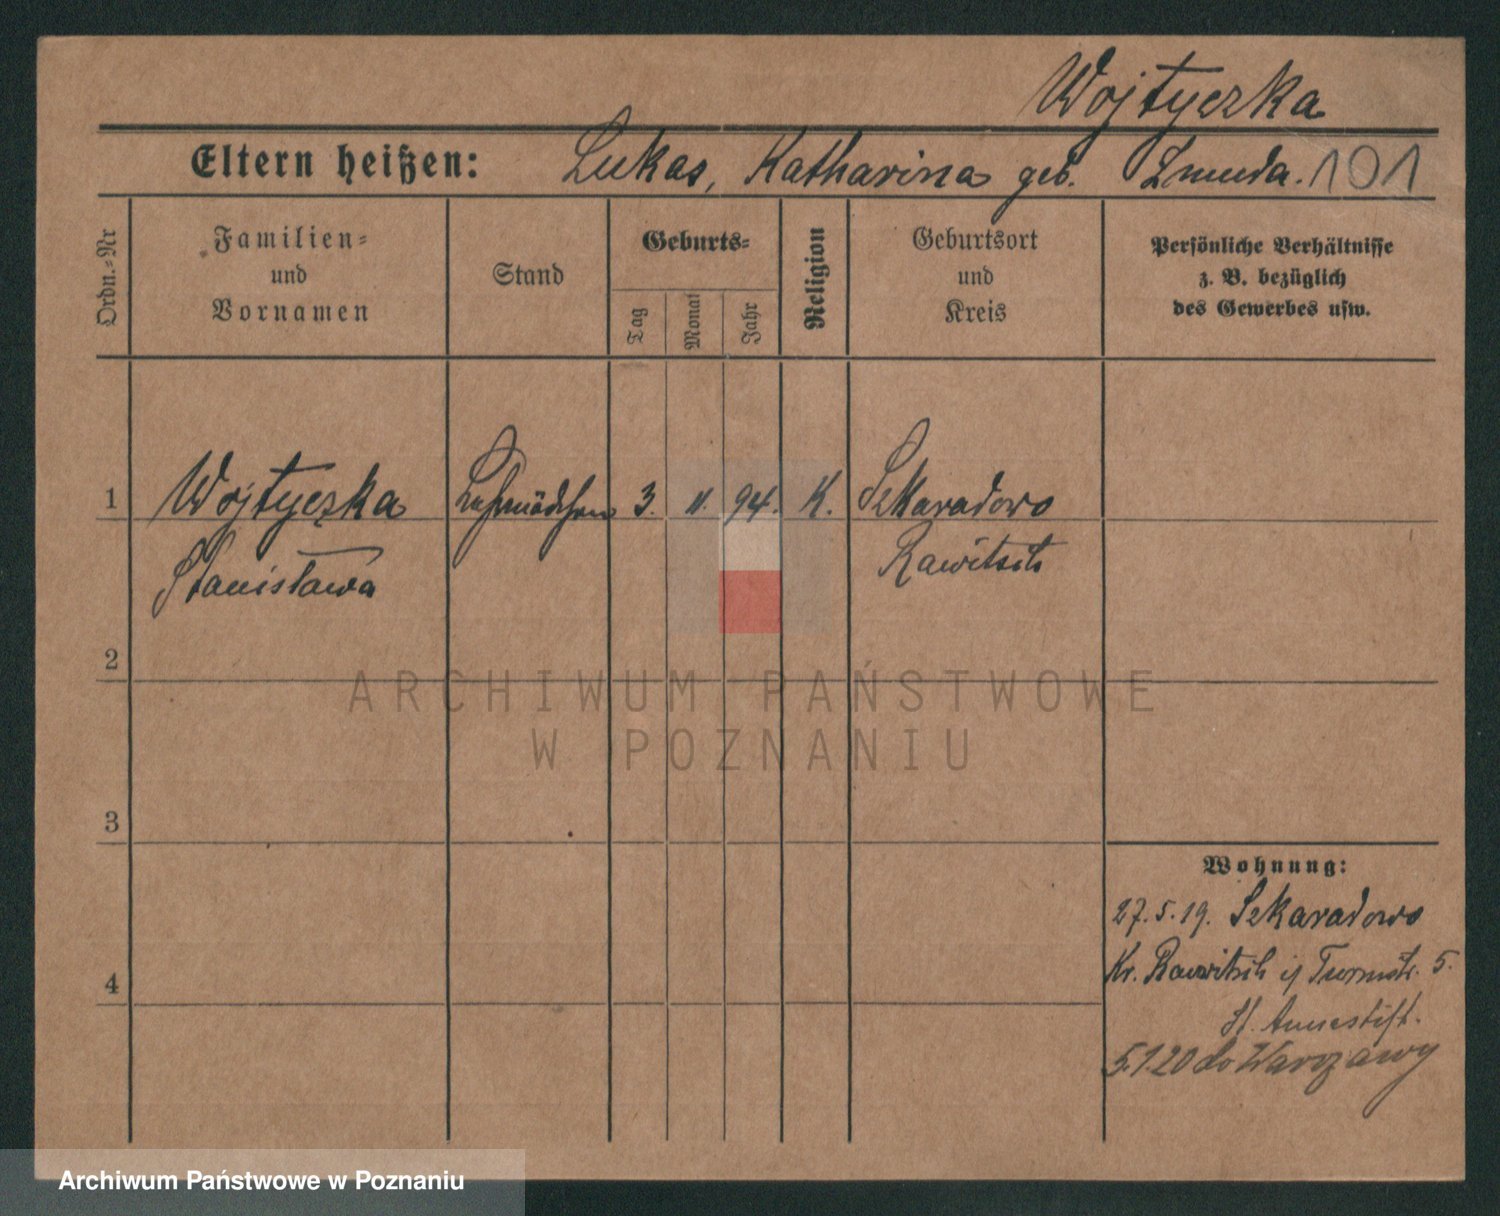 Wojtyczka
Eltern heißen: Lukas, Katharina geb. Zmuda. 101
Ordn.-Nr
Familien-
und
Vornamen
Stand
Geburts-
Tag
Monat
Jahr
Religion
Geburtsort
und
Kreis
Persönliche Verhältnisse
z. B. bezüglich
des Gewerbes usw.
1 Wojtyczka 3. 11. 94. K. Szkaradowo
Stanisława Rawitsch
2
ARCHIWUM PAŃSTWOWE
W POZNANIU
3
Wohnung:
27.5.19. Szkaradowo
Kr. Rawitsch Turmstr. 5.
4
St. Annestift.
5.1.20 do Warszawy
Archiwum Państwowe w Poznaniu